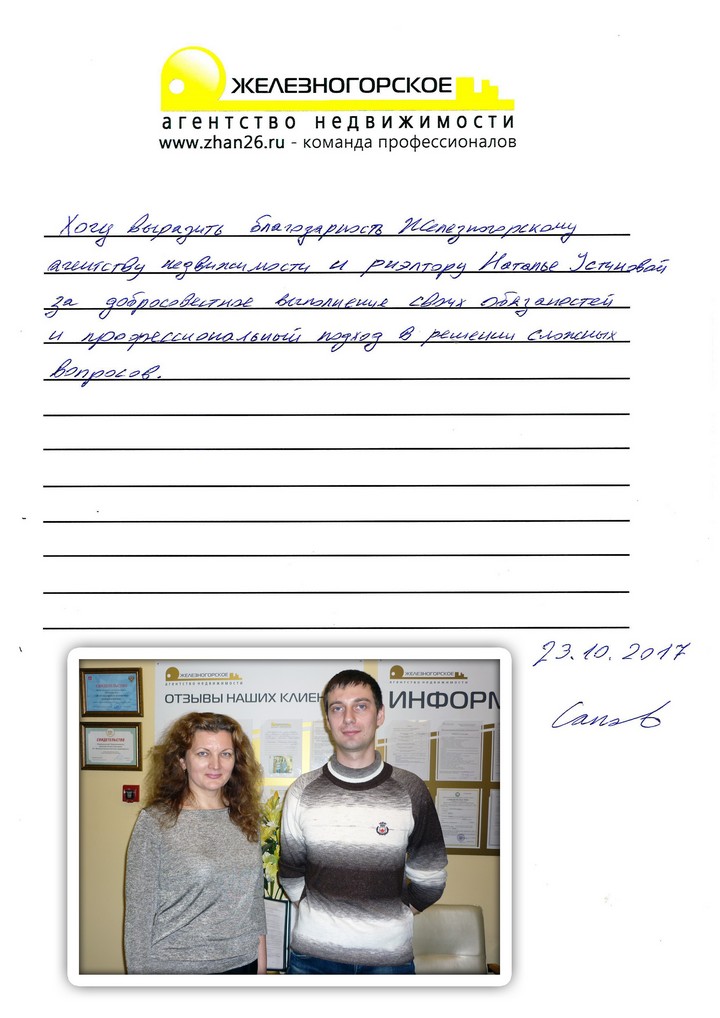 ЖЕЛЕЗНОГОРСКОЕ
агентство недвижимости
www.zhan26.ru - команда профессионалов
Хочу выразить благодарность Железногорскому
агентству недвижимости и риэлтору Наталье Устиновой
за добросовестное выполнение своих обязаностей
и профессиональный подход в решении сложных
вопросов.
23.10.2017
Сапов
ЖЕЛЕЗНОГОРСКОЕ
АГЕНТСТВО НЕДВИЖИМОСТИ
ОТЗЫВЫ НАШИХ КЛИЕН
ЖЕЛЕЗНОГОРСКОЕ
АГЕНТСТВО НЕДВИЖИМОСТИ
ИНФОРМ
СВИДЕТЕЛЬСТВО